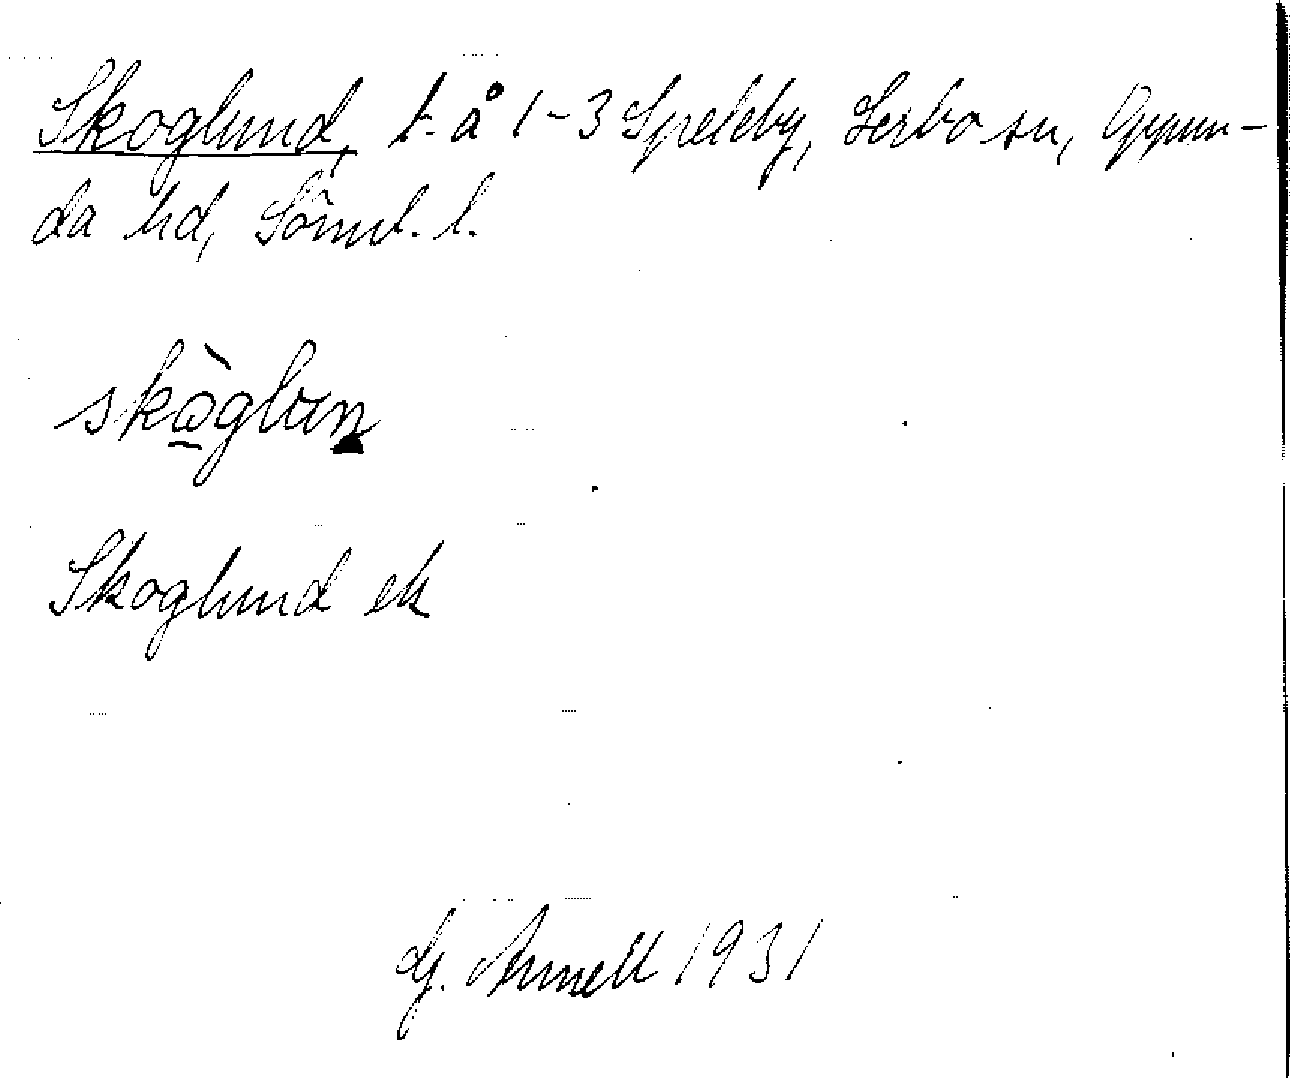 Skoglund, t. å 1-3 Speleby, Lerbo sn, Oppun-
da hd, Söml. l.
skò̱glun
Skoglund ek
Gj. Arnell 1931